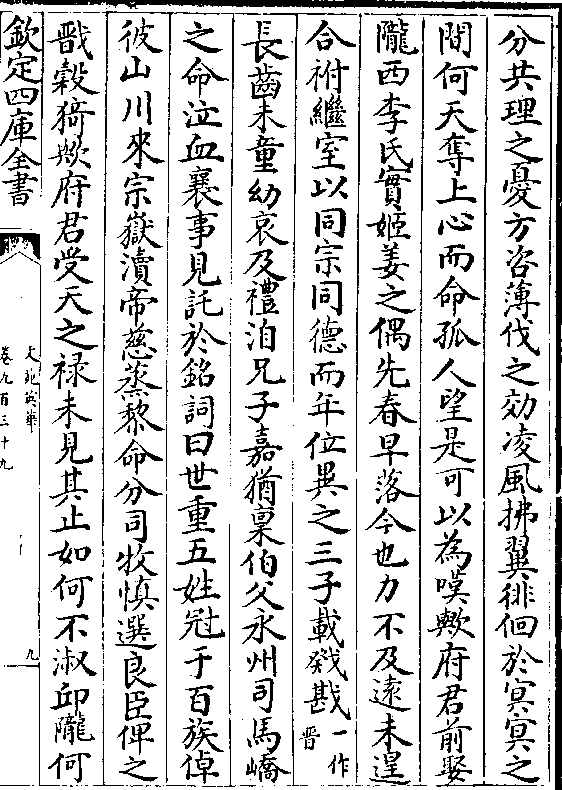 分共理之憂方咨薄伐之効凌風拂翼徘徊於冥冥之
間何天奪上心而命孤人望是可以為嘆歟府君前娶
隴西李氏實姬姜之偶先春早落今也力不及遠未遑
合祔繼室以同宗同德而年位異之三子載戣戡一作晉
長齒未童幼哀及禮洎兄子嘉猶稟伯父永州司馬嶠
之命泣血襄事見託於銘詞曰世重五姓冠于百族倬
彼山川來宗嶽瀆帝慈蒸黎命分司牧慎選良臣俾之
戩穀猗歟府君受天之禄未見其止如何不淑邱隴何
欽定四庫全書
文苑英華
卷九百三十九
九